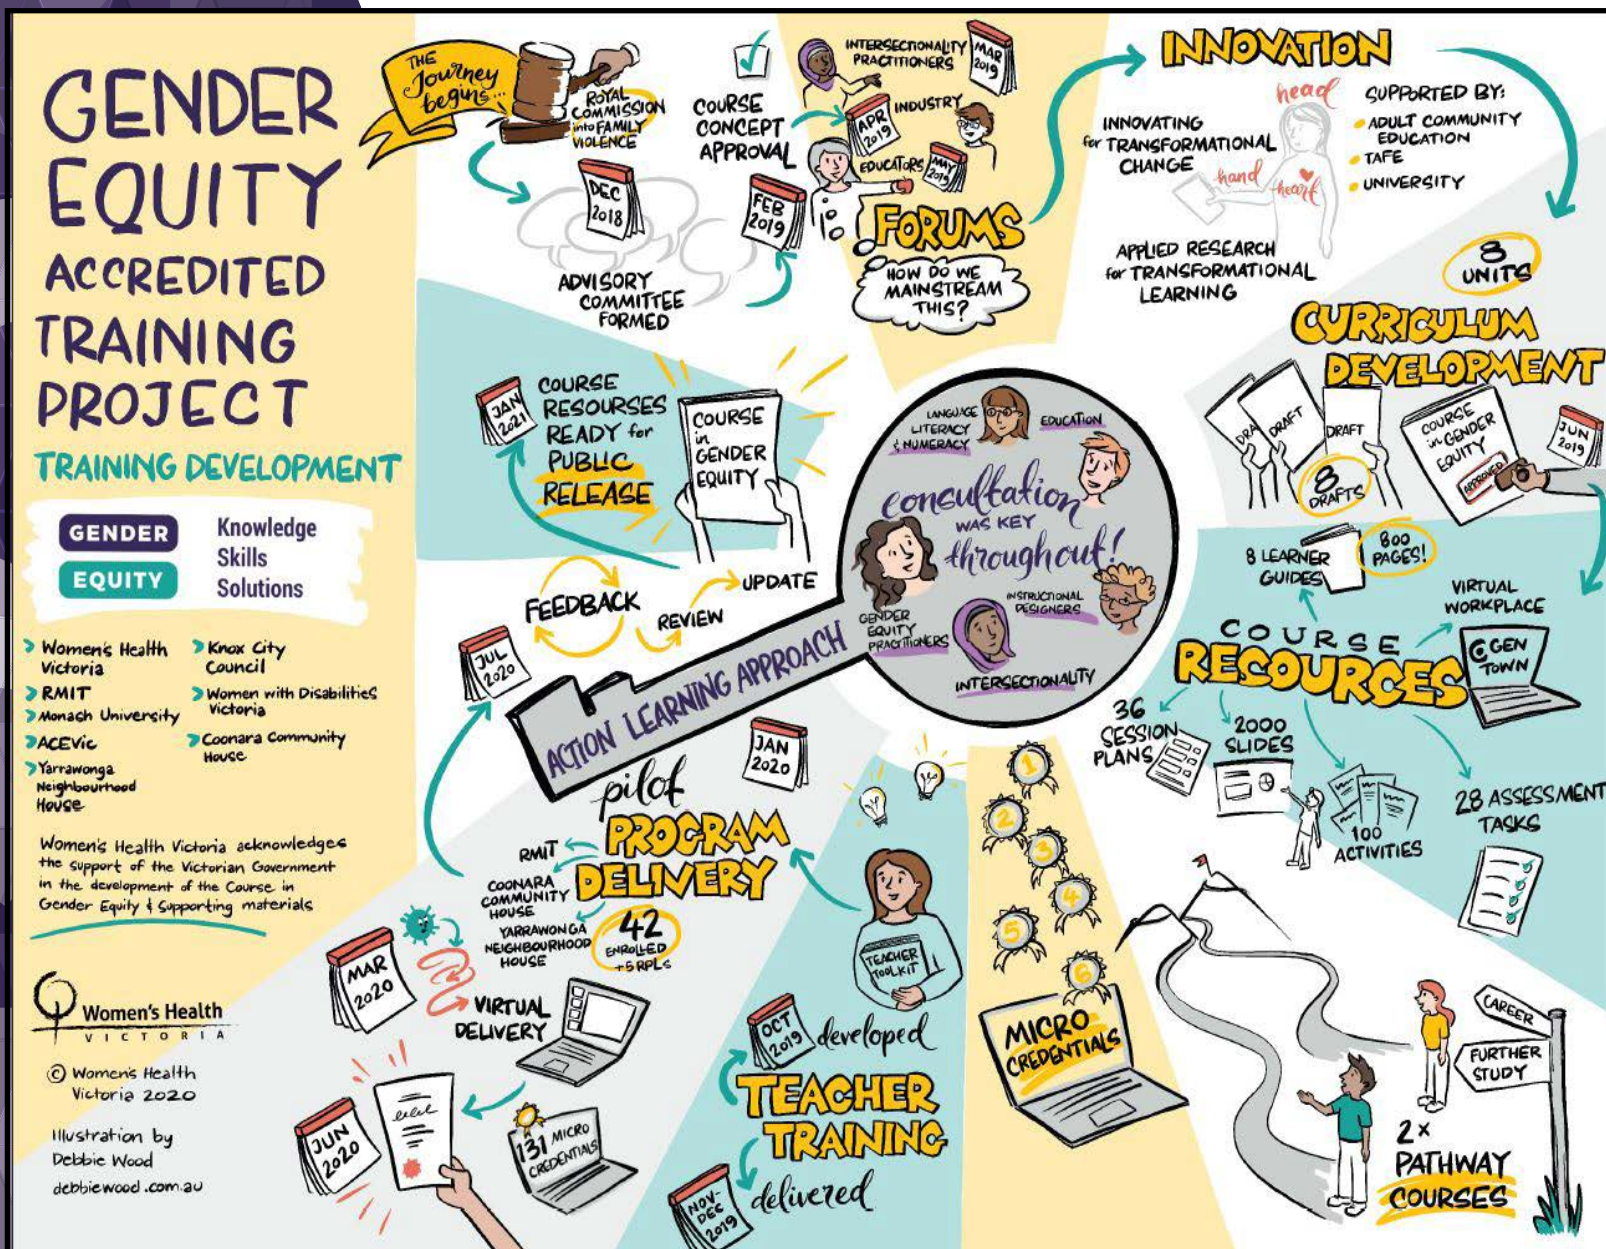 GENDER
EQUITY
ACCREDITED
TRAINING
PROJECT
TRAINING DEVELOPMENT
GENDER
EQUITY
Knowledge
Skills
Solutions
Women's Health
Victoria
RMIT
Monash University
ACEVic
Yarrawonga
Neighbourhood
House
Knox City
Council
Women with Disabilities
Victoria
Coonara Community
House
Women's Health Victoria acknowledges
the support of the Victorian Government
in the development of the Course in
Gender Equity & Supporting materials
Women's Health
VICTORIA
© Women's Health
Victoria 2020
Illustration by
Debbie Wood
debbiewood.com.au
THE
Journey
begins...
ROYAL
COMMISSION
into FAMILY
VIOLENCE
DEC
2018
ADVISORY
COMMITTEE
FORMED
COURSE
CONCEPT
APPROVAL
FEB
2019
INTERSECTIONALITY
PRACTITIONERS
MAR
2019
INDUSTRY
APR
2019
EDUCATORS
MAY
2019
FORUMS
HOW DO WE
MAINSTREAM
THIS?
INNOVATION
INNOVATING
for TRANSFORMATIONAL
CHANGE
head
hand
heart
SUPPORTED BY:
ADULT COMMUNITY
EDUCATION
TAFE
UNIVERSITY
APPLIED RESEARCH
for TRANSFORMATIONAL
LEARNING
8
UNITS
CURRICULUM
DEVELOPMENT
DRA
DRAFT
DRAFT
8
DRAFTS
COURSE
in GENDER
EQUITY
APPROVED
JUN
2019
8 LEARNER
GUIDES
800
PAGES!
VIRTUAL
WORKPLACE
COURSE
RECOURCES
C GEN
TOWN
36
SESSION
PLANS
2000
SLIDES
100
ACTIVITIES
28 ASSESSMENT
TASKS
JAN
2021
COURSE
RESOURSES
READY for
PUBLIC
RELEASE
COURSE
in
GENDER
EQUITY
LANGUAGE
LITERACY
& NUMERACY
EDUCATION
consultation
WAS KEY
throughout!
GENDER
EQUITY
PRACTITIONERS
INSTRUCTIONAL
DESIGNERS
INTERSECTIONALITY
ACTION LEARNING APPROACH
FEEDBACK
REVIEW
UPDATE
JUL
2020
JAN
2020
pilot
PROGRAM
DELIVERY
RMIT
COONARA
COMMUNITY
HOUSE
YARRAWONGA
NEIGHBOURHOOD
HOUSE
42
ENROLLED
+5 RPLs
MAR
2020
VIRTUAL
DELIVERY
JUN
2020
131 MICRO
CREDENTIALS
TEACHER
TOOLKIT
OCT
2019
developed
TEACHER
TRAINING
NOV-
DEC
2019
delivered
1
2
3
4
5
6
MICRO
CREDENTIALS
CAREER
FURTHER
STUDY
2x
PATHWAY
COURSES